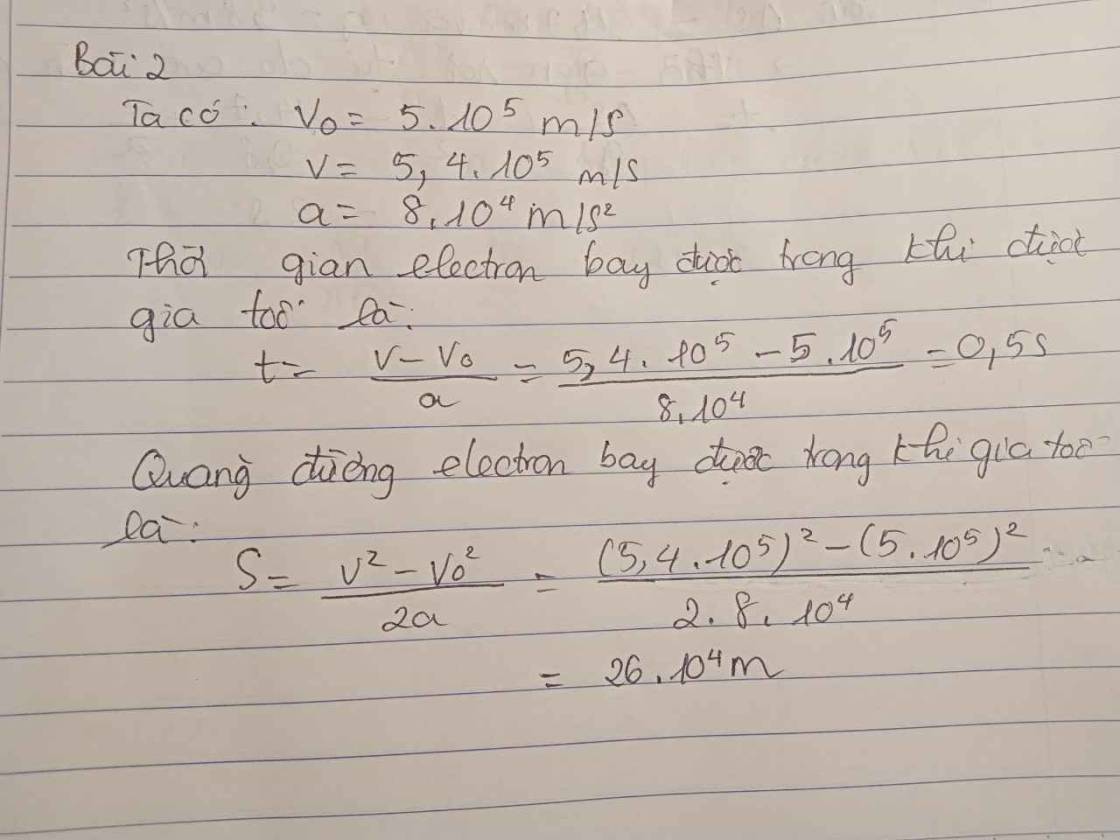 Bài 2
Ta có: V₀ = 5.10⁵ m/s
V = 5,4.10⁵ m/s
a = 8.10⁴ m/s²
Thời gian electron bay được trong khi được
gia tốc là:
t = (V - V₀)/a = (5,4.10⁵ - 5.10⁵)/(8.10⁴) = 0,5s
Quang đường electron bay được trong khi gia tốc
là:
S = (V² - V₀²)/(2a) = ((5,4.10⁵)² - (5.10⁵)²)/(2.8.10⁴)
= 26.10⁴m